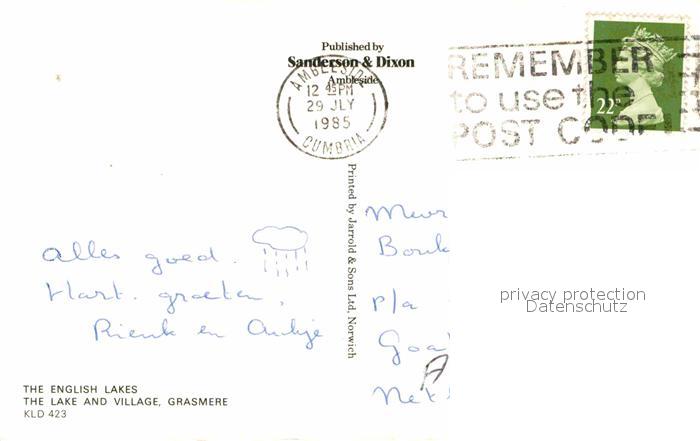 Published by
Sanderson & Dixon
Ambleside
AMBLESIDE
12 45 PM
29 JLY
1985
CUMBRIA
REMEMBER
to use the
POST CODE
22P
Printed by Jarrold & Sons Ltd, Norwich
Alles goed.
Hart. groeten,
Rienk en
p/a
privacy protection
Datenschutz
THE ENGLISH LAKES
THE LAKE AND VILLAGE, GRASMERE
KLD 423